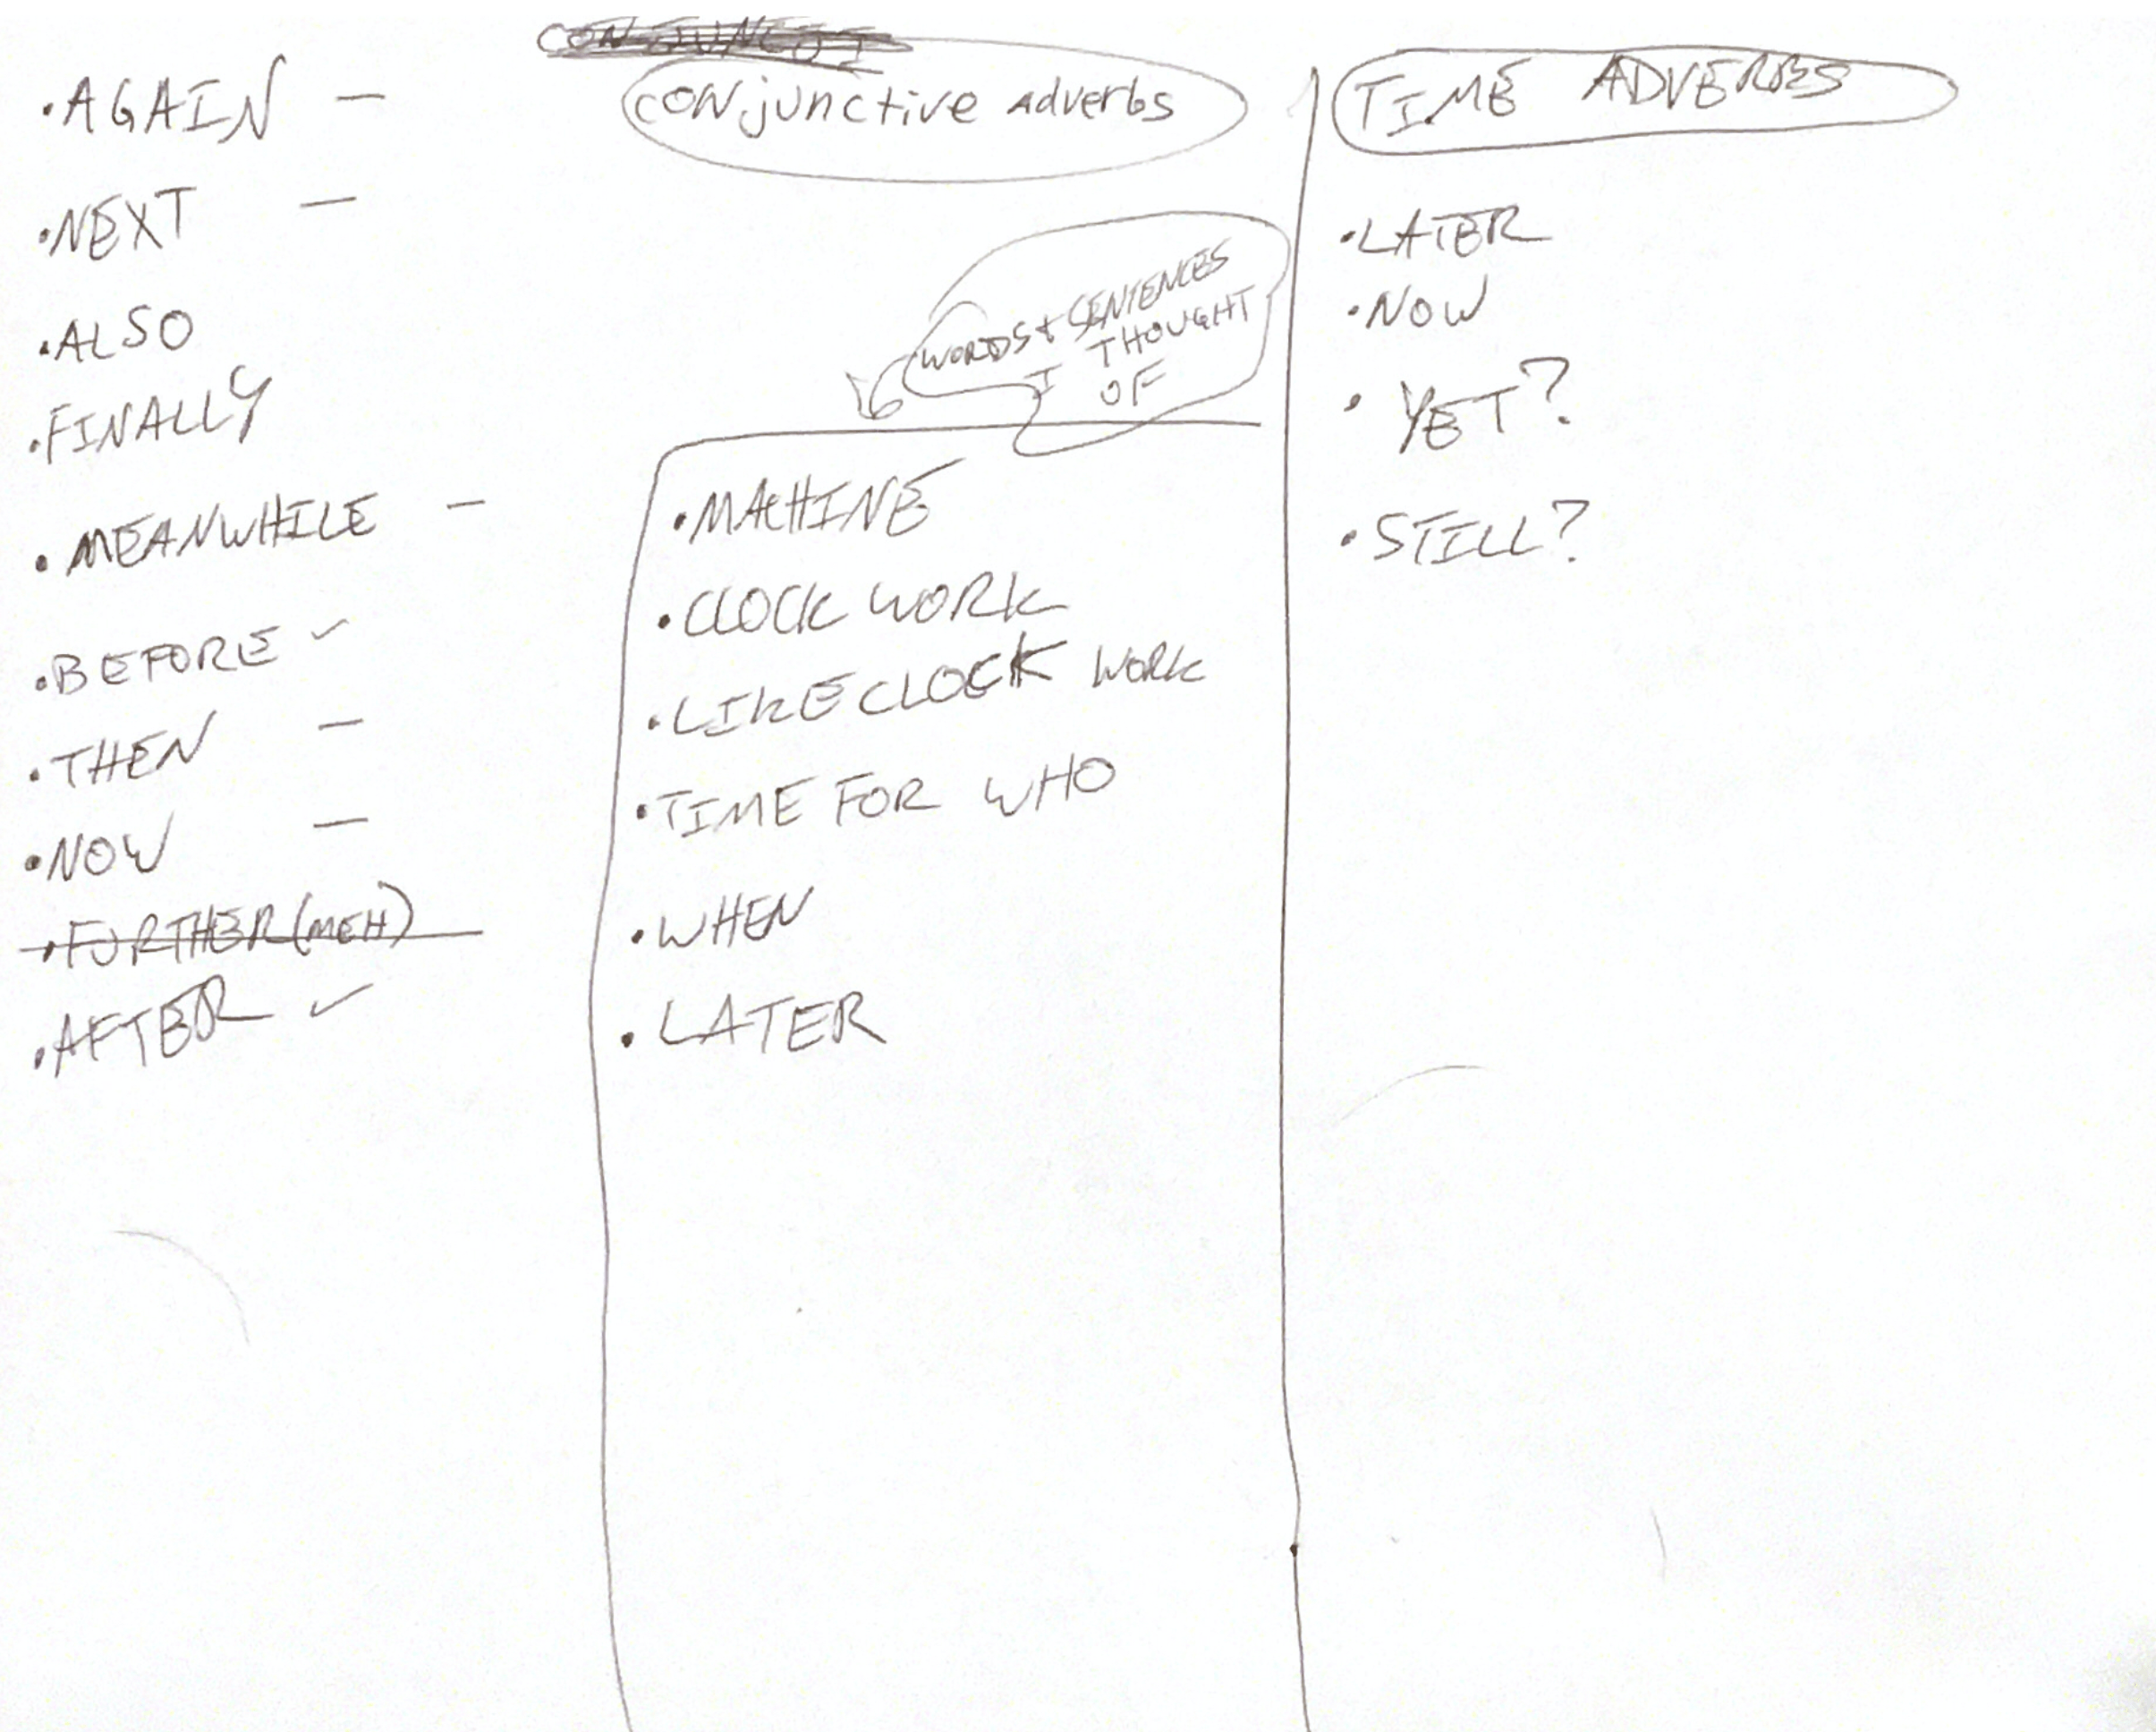 CONJUNCTI
conjunctive Adverbs
·AGAIN —
·NEXT —
·ALSO
·FINALLY
·MEANWHILE —
·BEFORE ✓
·THEN —
·NOW —
·FURTHER (MEH)
·AFTER ✓
WORDS + SENTENCES
I THOUGHT
OF
·MACHINE
·CLOCK WORK
·LIKE CLOCK WORK
·TIME FOR WHO
·WHEN
·LATER
TIME ADVERBS
·LATER
·NOW
· YET?
·STILL?